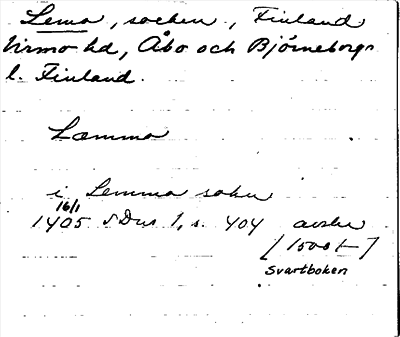 Lemo, socken, Finland
Virmo hd, Åbo och Björneborgs
l. Finland.
Læmmo
i Lemmo sokn
16/1
1405 SDns 1, s. 404 avskr
[1500t–]
Svartboken